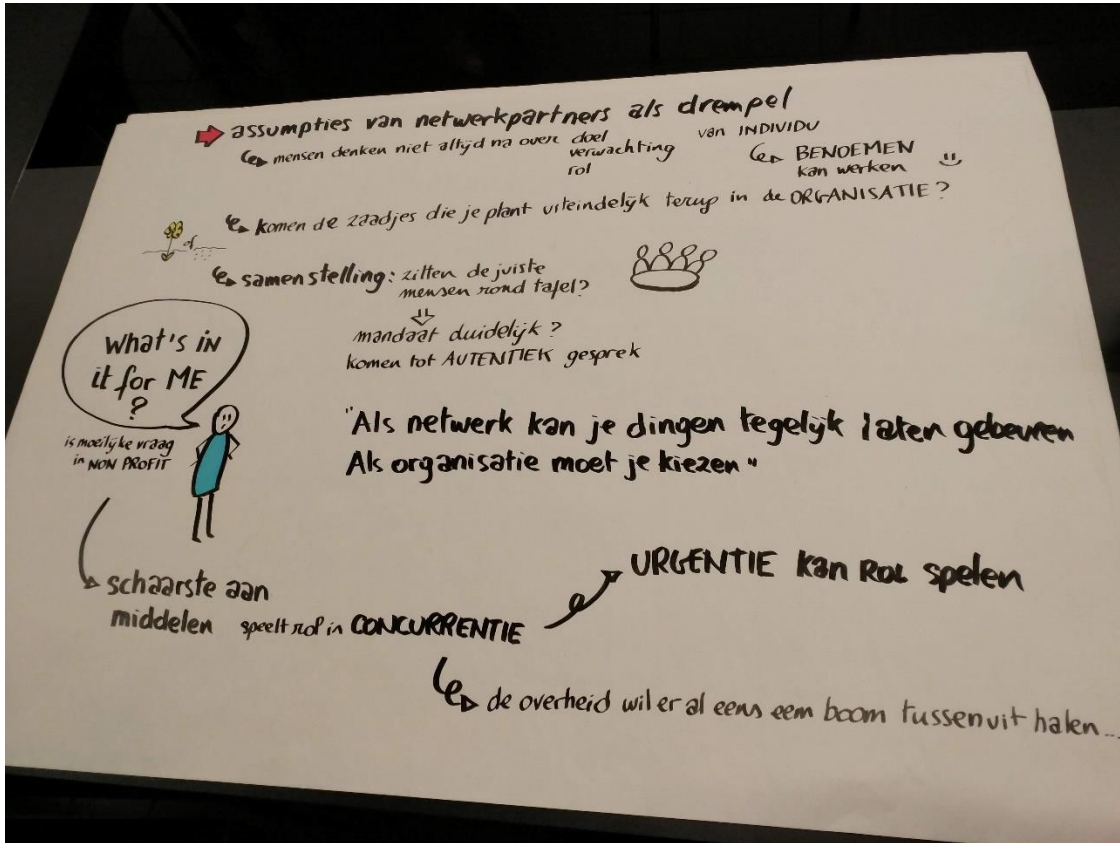 assumpties van netwerkpartners als drempel
mensen denken niet altijd na over doel
verwachting
rol
van INDIVIDU
BENOEMEN
kan werken
komen de zaadjes die je plant uiteindelijk terug in de ORGANISATIE?
of
samenstelling: zitten de juiste
mensen rond tafel?
mandaat duidelijk?
komen tot AUTENTIEK gesprek
What's iN
it for ME
?
is moeilijke vraag
in NON PROFIT
"Als netwerk kan je dingen tegelijk laten gebeuren
Als organisatie moet je kiezen"
schaarste aan
middelen speelt rol in CONCURRENTIE
URGENTIE kan ROL spelen
de overheid wil er al eens eem boom tussenuit halen...